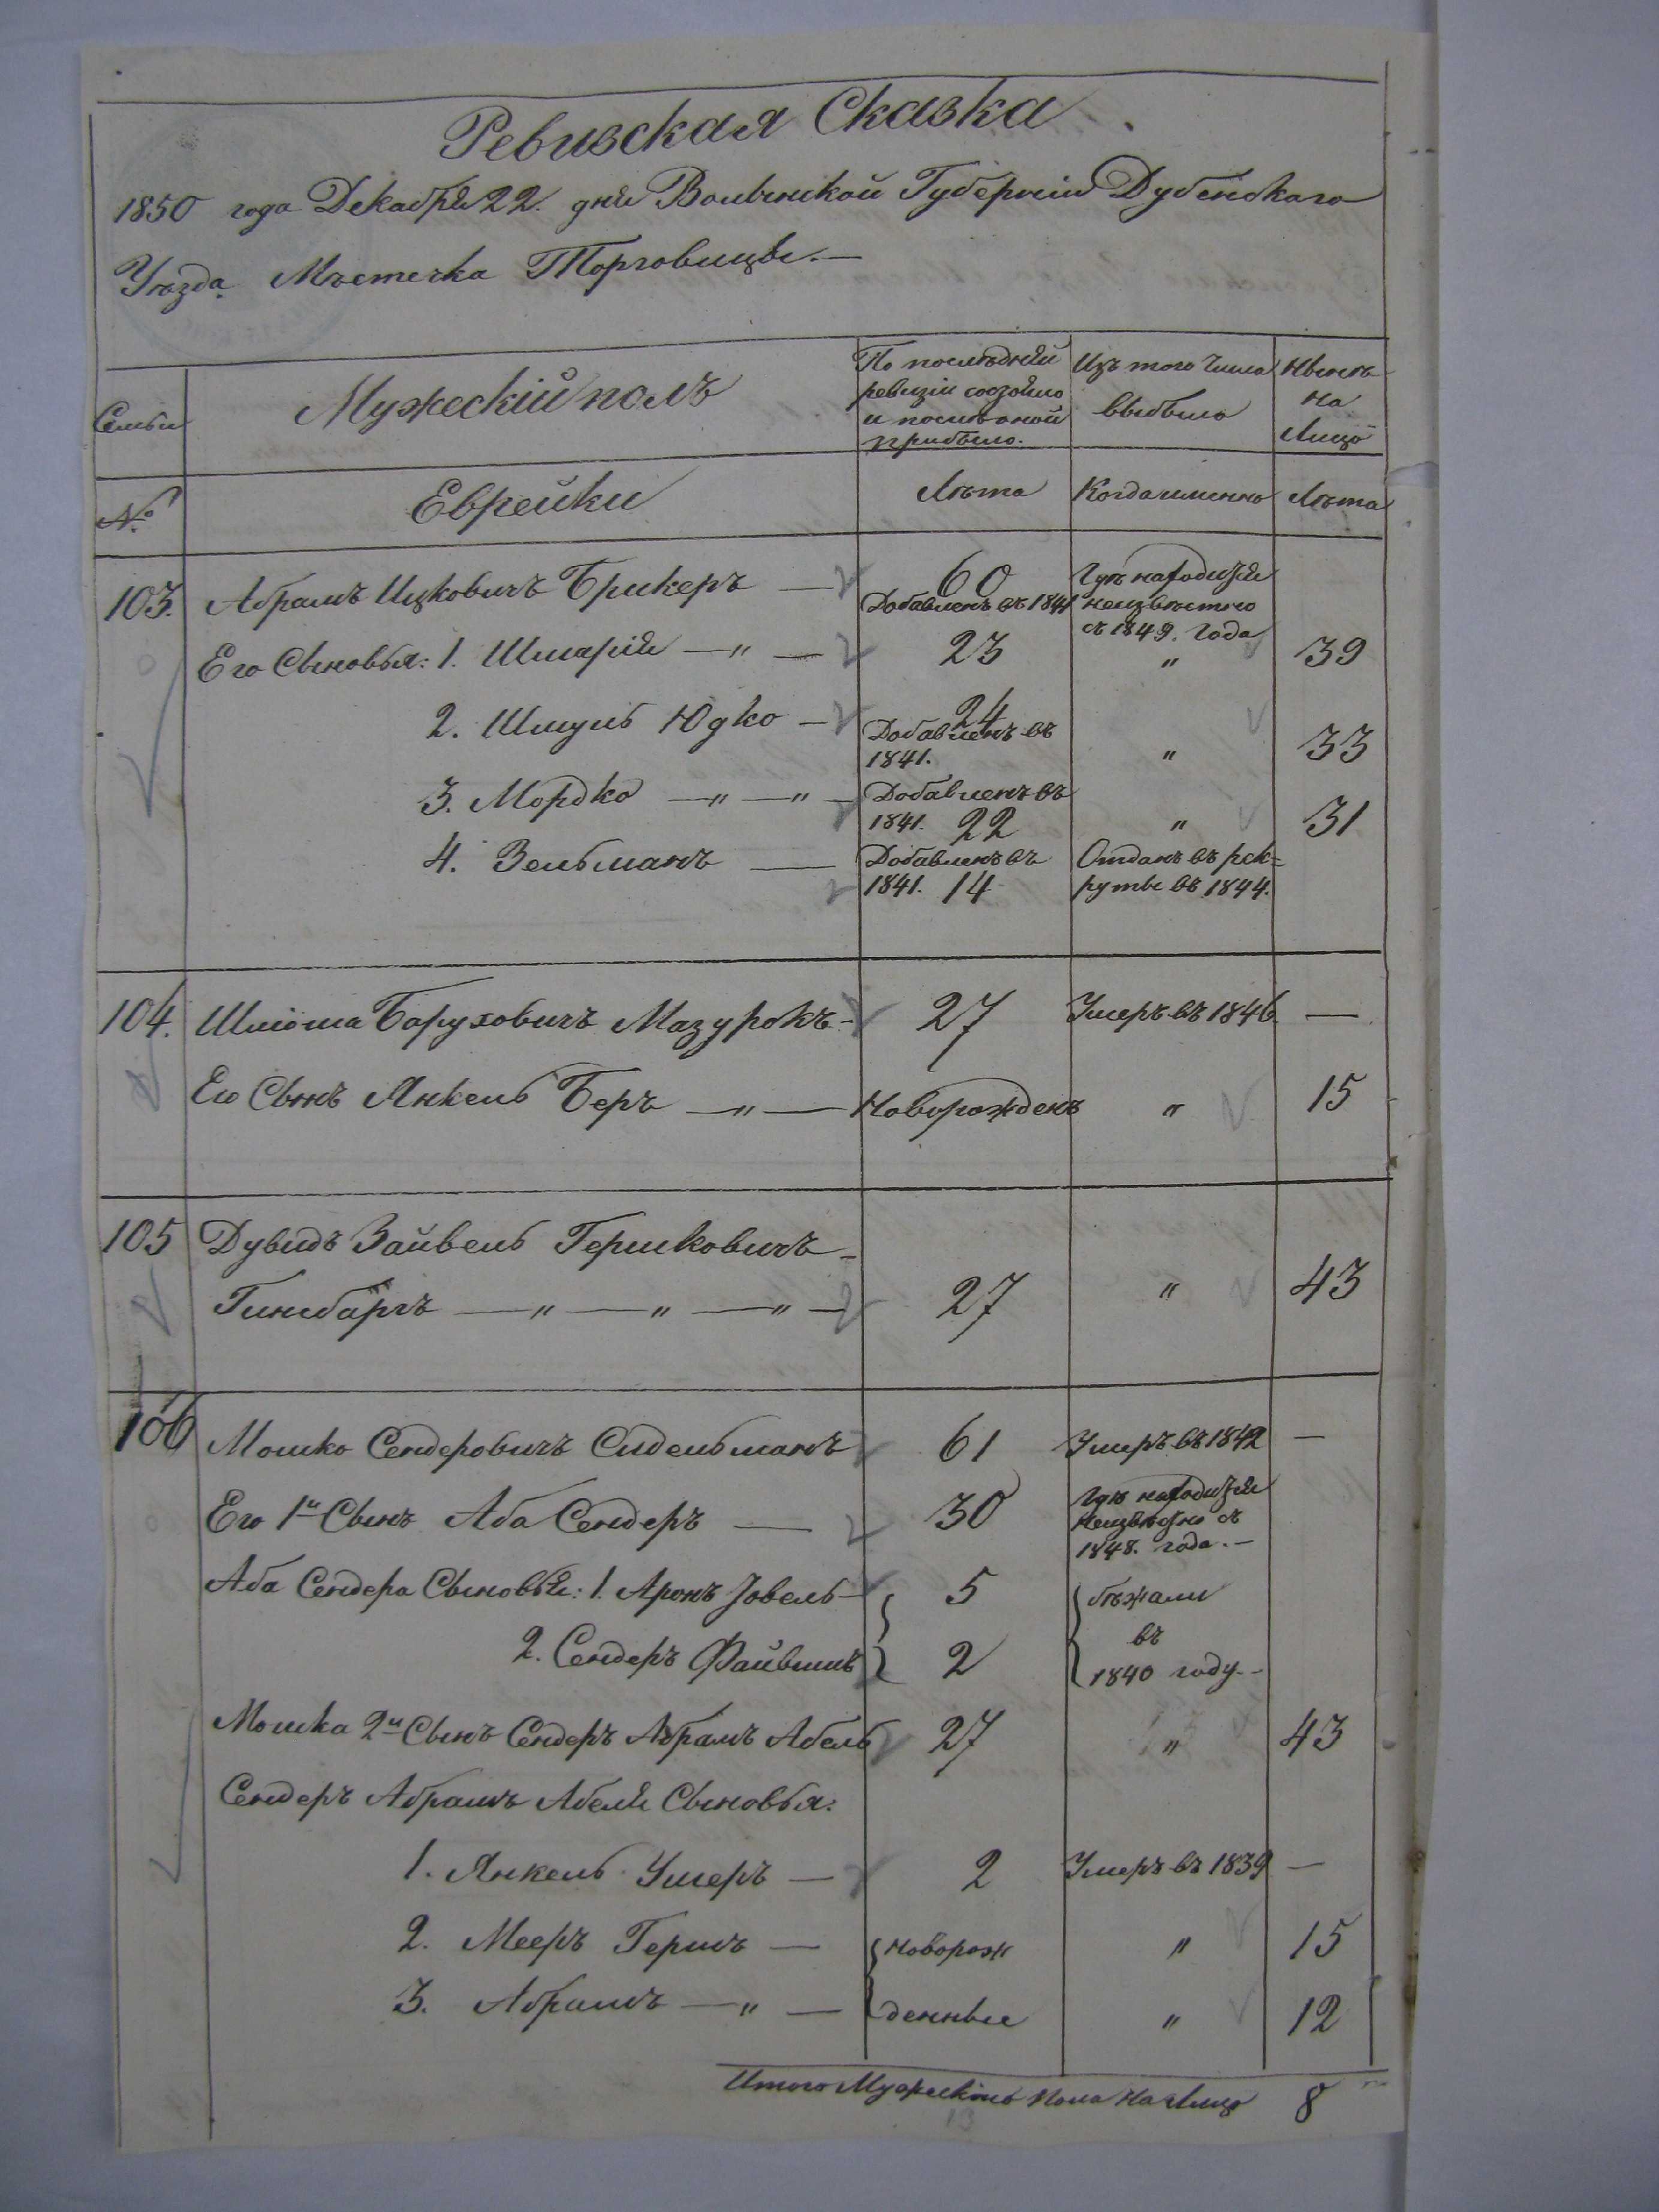 Ревизская Сказка
1850 года Декабря 22. дня Волынской Губернии Дубенского
Уѣзда Мѣстечка Торговицы.—
Семьи
Мужескій полъ
По послѣдней
ревизіи состояло
и послѣ оной
прибыло.
Изъ того числа
выбыло
Нынѣ
на
Лицо
№
Еврейки
Лѣта
Когда именно
Лѣта
103. Абрамъ Ицковичъ Брикеръ — 60
Добавленъ въ 1841
Гдѣ находится
неизвѣстно
съ 1849. года
Его Сыновья: 1. Шмарія —〃— 23 〃 39
2. Шмуль Юдко — 24
Добавленъ въ
1841. 〃 33
3. Мордко —〃—〃— Добавленъ въ
1841. 22 〃 31
4. Зельманъ — Добавленъ въ
1841. 14
Отданъ въ рек=
руты въ 1844.
104. Шліома Баруховичъ Мазурокъ — 27 Умеръ въ 1846 —
Его Сынъ Янкель Беръ —〃— Новорожденъ 〃 15
105 Дувидъ Зайвель Гершковичъ
Гинсбаргъ —〃—〃—〃— 27 〃 43
106 Мошко Сендеровичъ Сидельманъ 61 Умеръ въ 1842 —
Его 1й Сынъ Аба Сендеръ — 30
Гдѣ находится
неизвѣстно съ
1848. года.—
Аба Сендера Сыновья: 1. Аронъ Іовель — 5
2. Сендеръ Файвишъ 2
бѣжали
въ
1840 году.—
Мошка 2й Сынъ Сендеръ Абрамъ Абель 27 〃 43
Сендеръ Абрамъ Абеля Сыновья:
1. Янкель Умеръ — 2 Умеръ въ 1839 —
2. Мееръ Гершъ — новорож 〃 15
3. Абрамъ —〃— денные 〃 12
Итого Мужеского пола на лицо 8